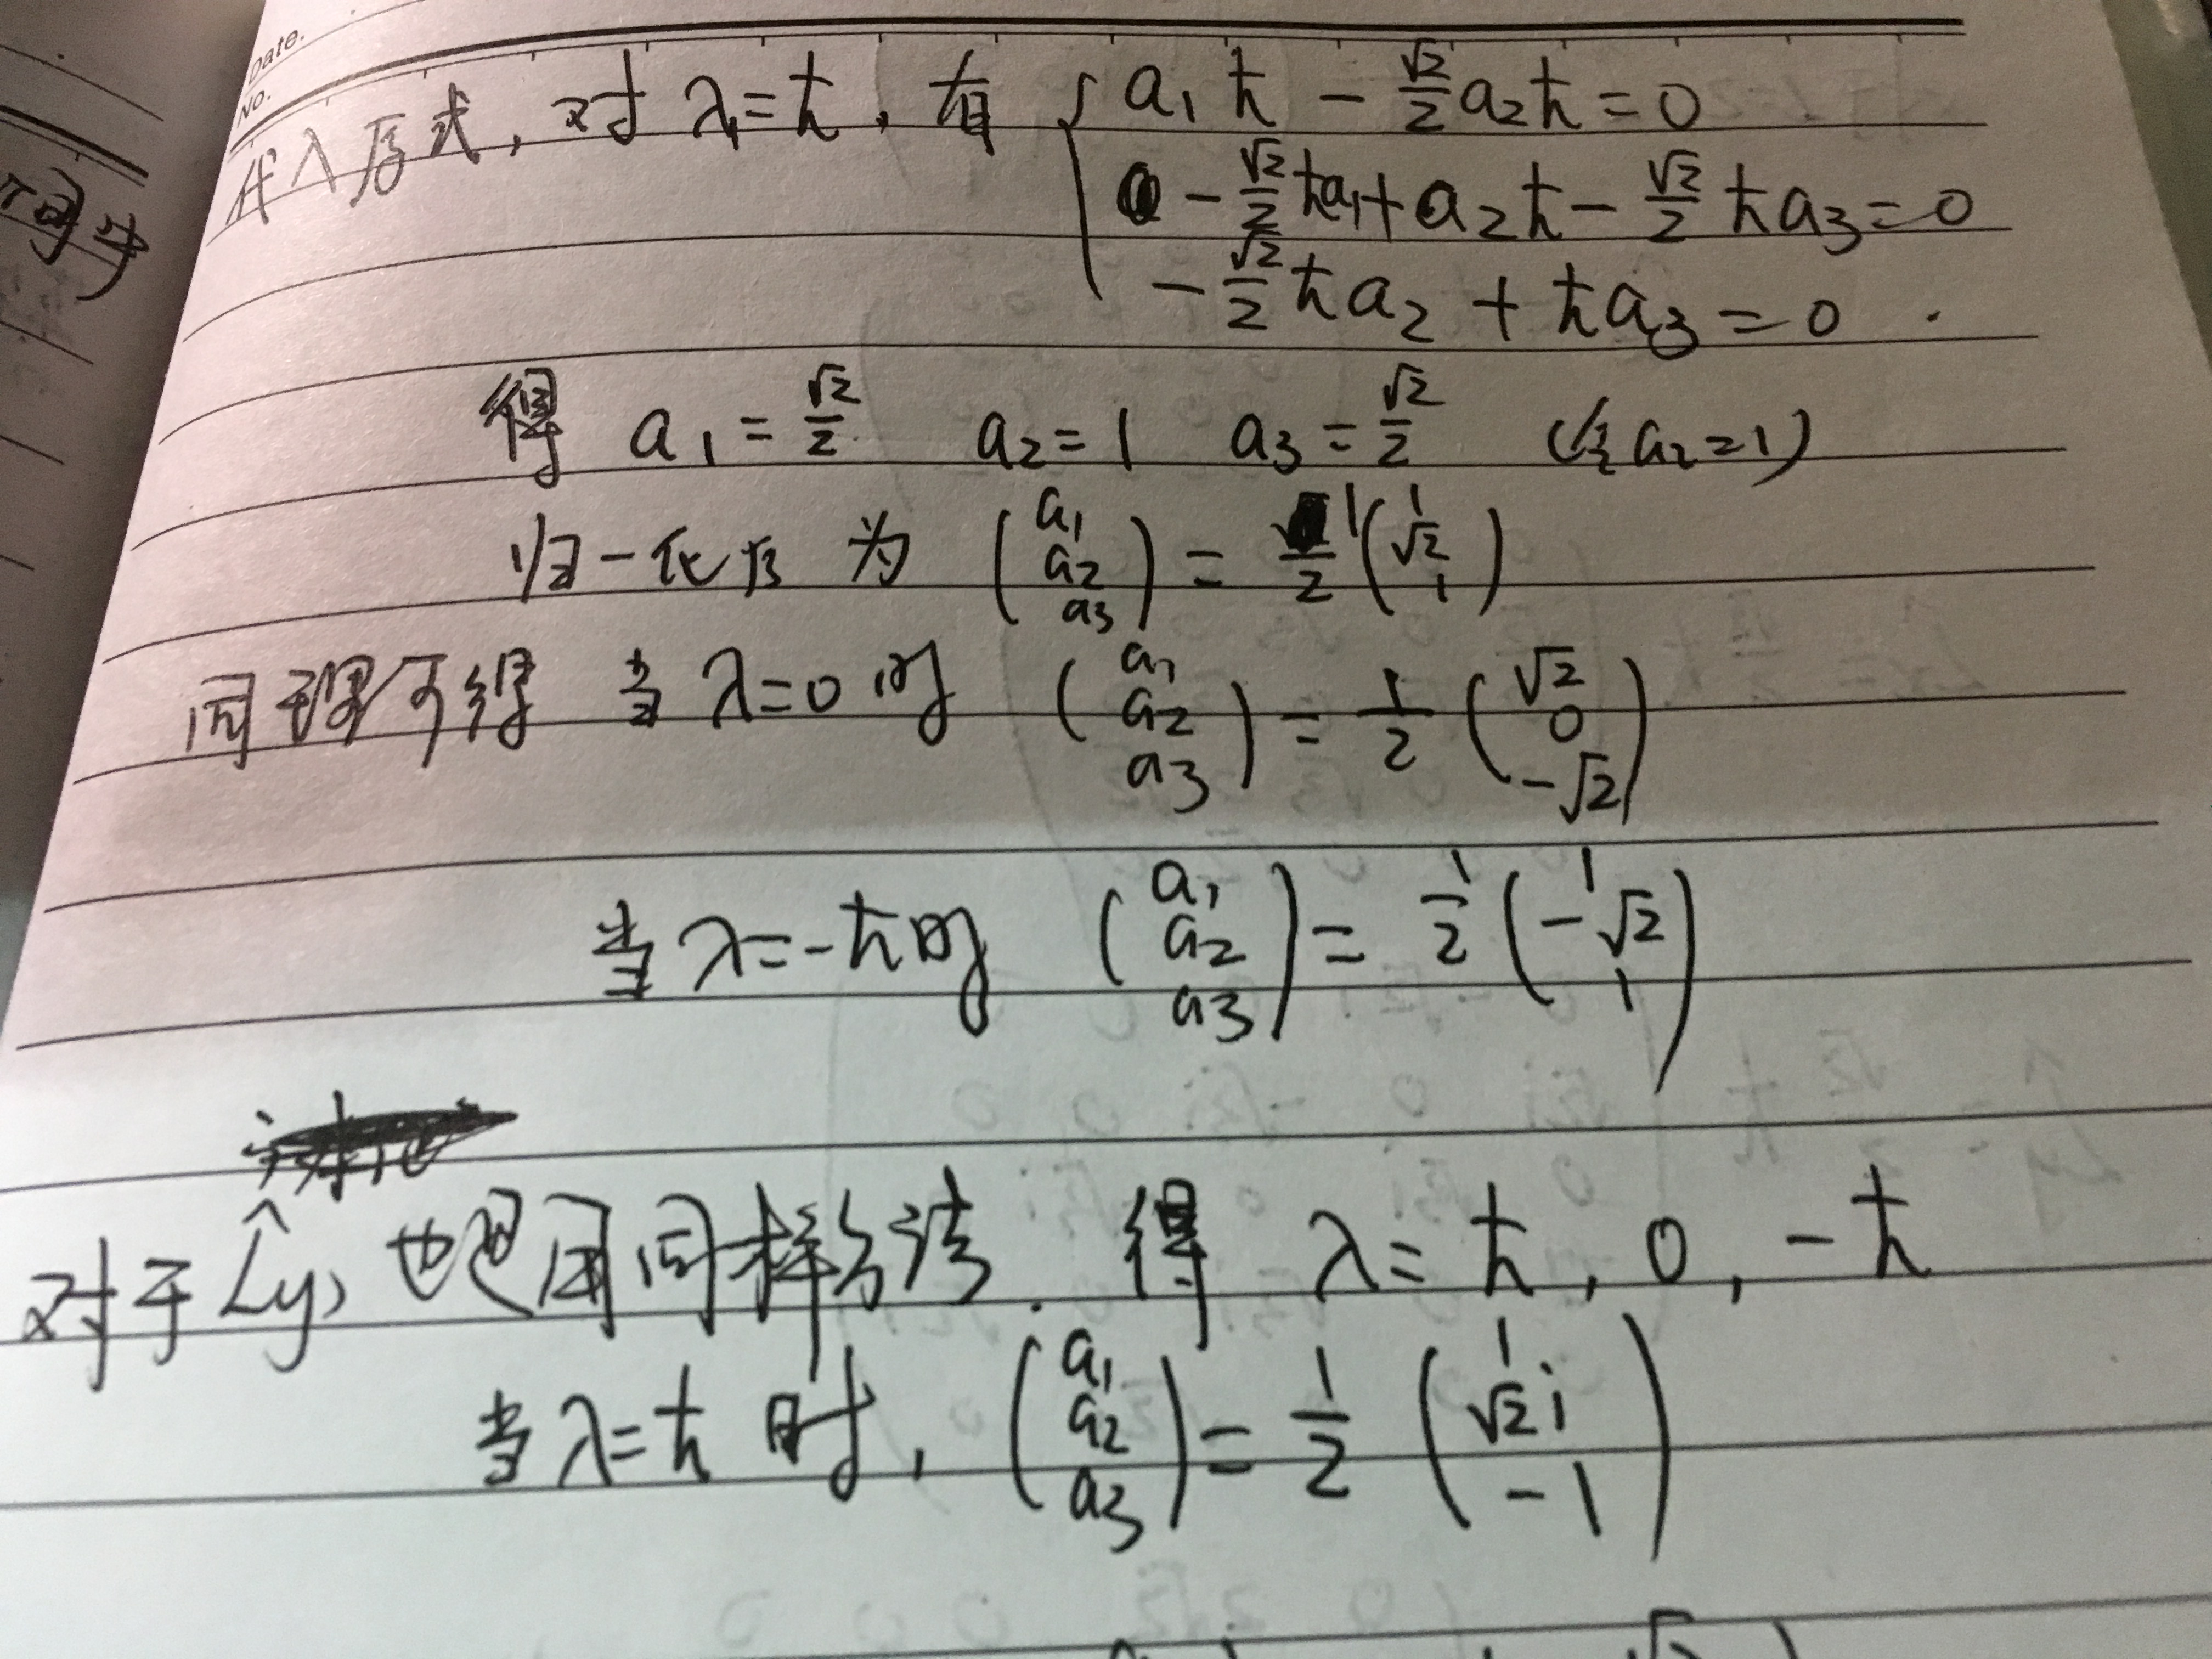 Date.
No.
代入原式，对 λ₁=ħ，有 { a₁ħ - √2/2 a₂ħ = 0
- √2/2 ħa₁ + a₂ħ - √2/2 ħa₃ = 0
- √2/2 ħa₂ + ħa₃ = 0 .
得 a₁ = √2/2 a₂ = 1 a₃ = √2/2 (令a₂=1)
归一化后 为 (a₁ a₂ a₃) = 1/2 (1 √2 1)
同理可得 当 λ=0 时 (a₁ a₂ a₃) = 1/2 (√2 0 -√2)
当 λ=-ħ时 (a₁ a₂ a₃) = 1/2 (1 -√2 1)
对于 L̂y, 也是用同样方法. 得 λ = ħ, 0, -ħ
当 λ=ħ 时, (a₁ a₂ a₃) = 1/2 (1 √2i -1)